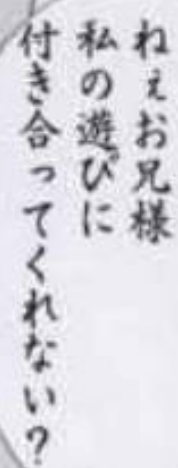 ねぇお兄様
私の遊びに
付き合ってくれない？